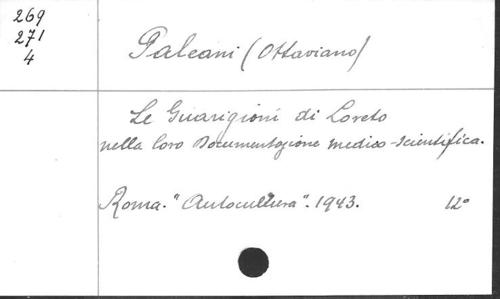 269
271
4
Paleani (Ottaviano)
Le Guarigioni di Loreto
nella loro Documentazione medico-scientifica.
Roma. "Autocultura". 1943. 12°